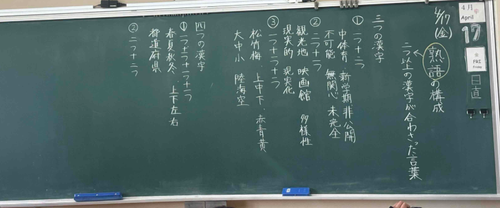 4/17(金)
熟語の構成
二つ以上の漢字が合わさった言葉
三つの漢字
① 一つ+二つ
中体育 新学期 非公開
不可能 無関心 未完全
② 二つ+一つ
観光地 映画館 多様性
現実的 現実化
③ 一つ+一つ+一つ
松竹梅 上中下 赤青黄
大中小 陸海空
四つの漢字
① 一つ+一つ+一つ+一つ
春夏秋冬 上下左右
都道府県
② 二つ+二つ
4月
April
17
金
FRI
日直